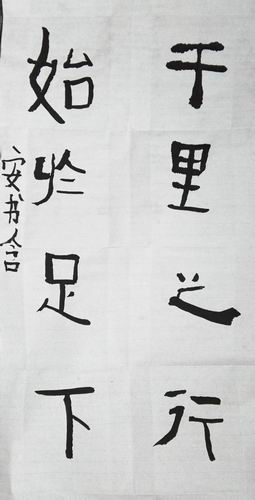 千里之行
始於足下
安书舍